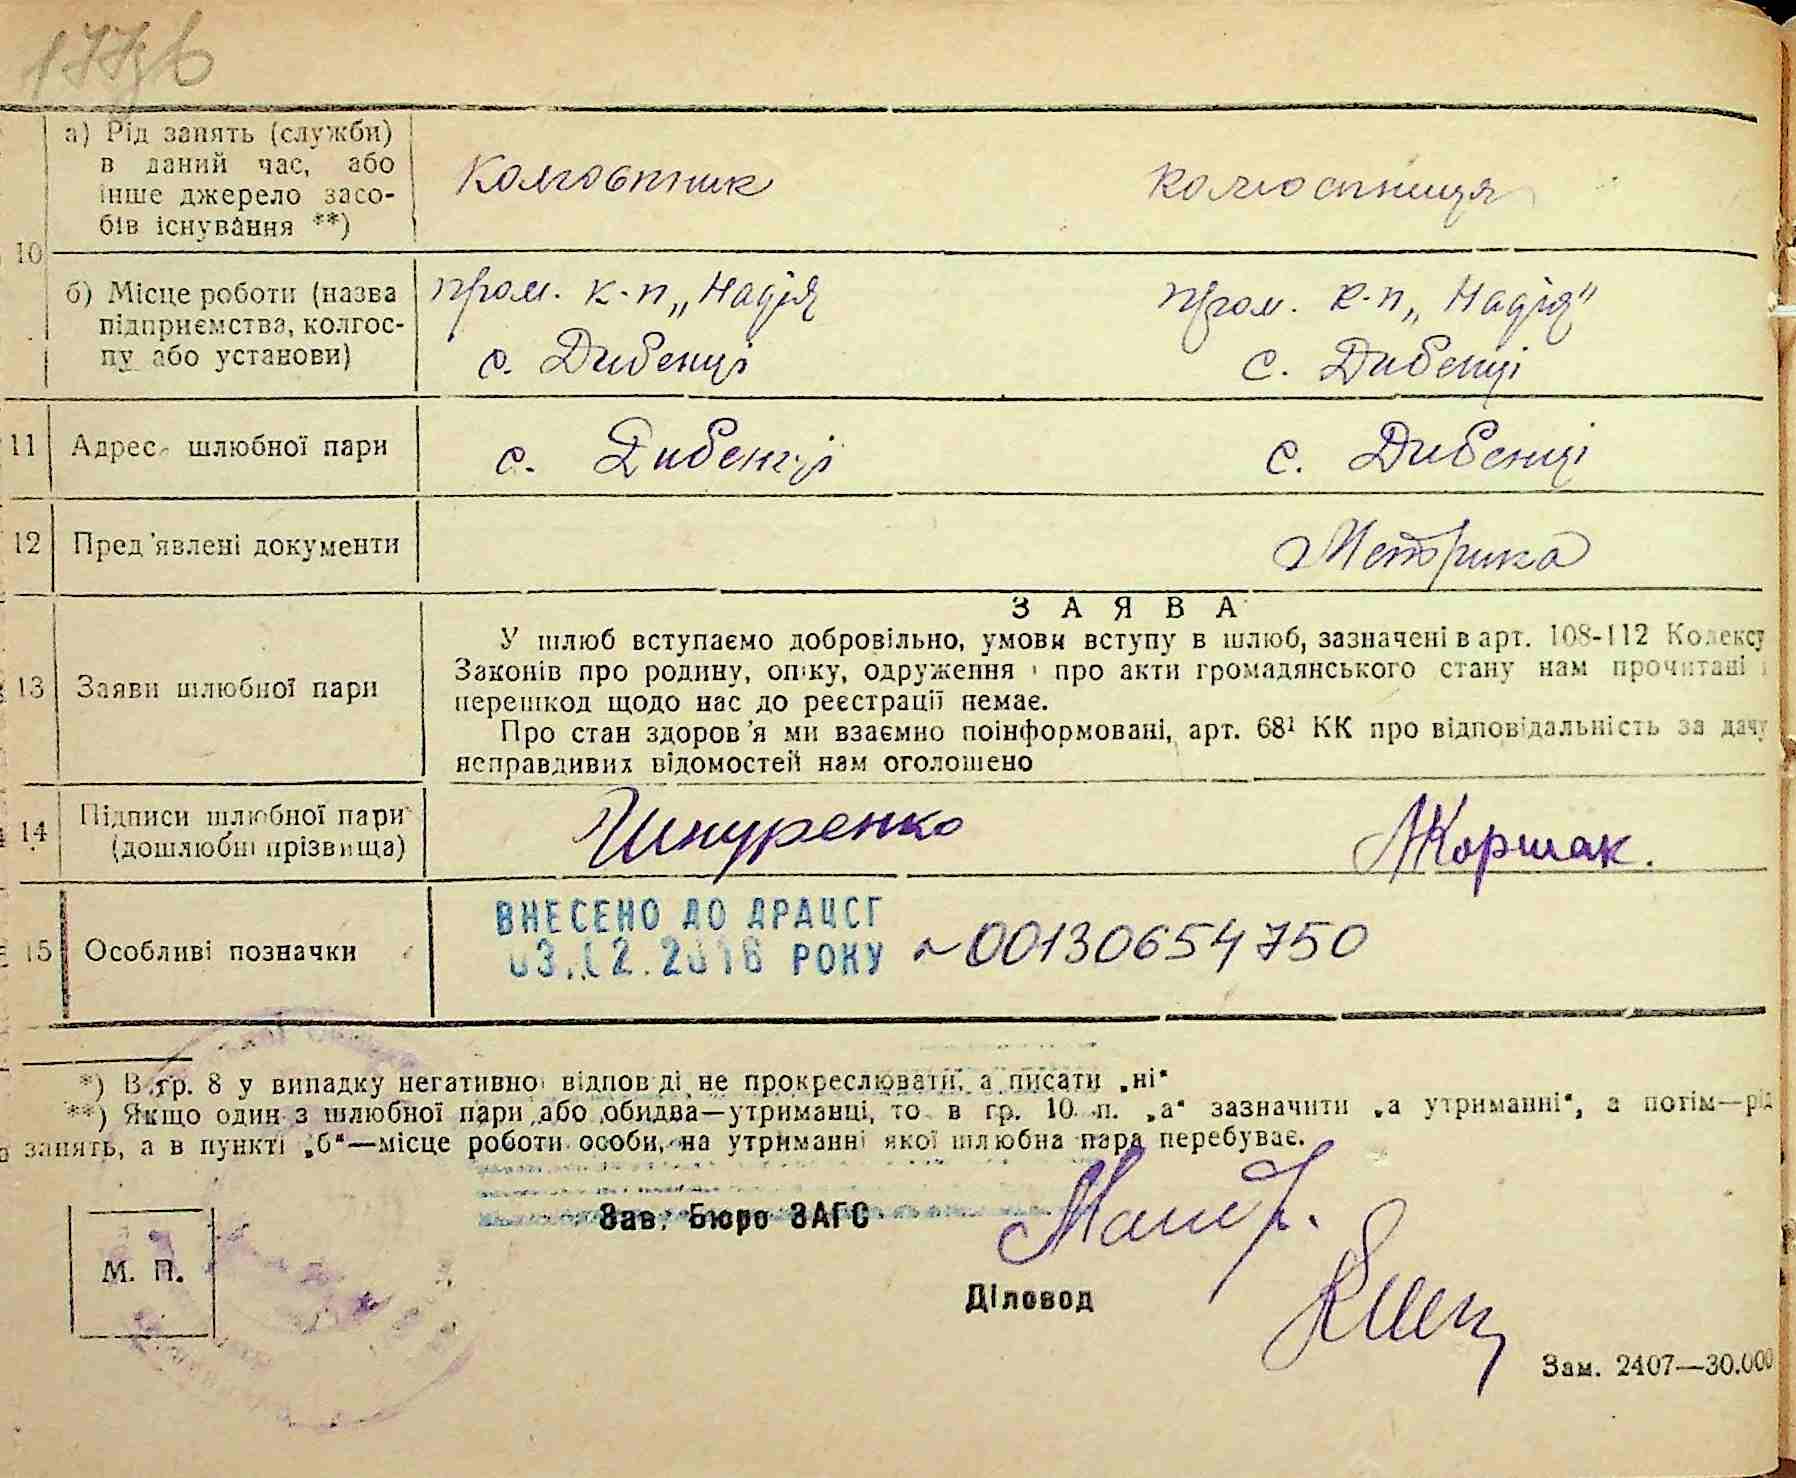 177зв
а) Рід занять (служби)
в даний час, або
інше джерело засо-
бів існування **)
Колгоспник
колгоспниця
10
б) Місце роботи (назва
підприємства, колгос-
пу або установи)
пром. к-п „Надія
с. Дибенці
пром. к-п „Надія"
с. Дибенці
11
Адреса шлюбної пари
с. Дибенці
с. Дибенці
12
Пред'явлені документи
Метрика
13
Заяви шлюбної пари
ЗАЯВА
У шлюб вступаємо добровільно, умови вступу в шлюб, зазначені в арт. 108-112 Кодексу
Законів про родину, опіку, одруження і про акти громадянського стану нам прочитані і
перешкод щодо нас до реєстрації немає.
Про стан здоров'я ми взаємно поінформовані, арт. 68¹ КК про відповідальність за дачу
неправдивих відомостей нам оголошено
14
Підписи шлюбної пари
(дошлюбні прізвища)
Шнуренко
Коршак.
15
Особливі позначки
ВНЕСЕНО ДО ДРАЦСГ
РОКУ
00130654750
*) В гр. 8 у випадку негативної відповіді не прокреслювати, а писати „ні"
**) Якщо один з шлюбної пари або обидва—утриманці, то в гр. 10 п. „а" зазначити „а утриманні", а потім—рід
занять, а в пункті „б"—місце роботи особи, на утриманні якої шлюбна пара перебуває.
Зав. Бюро ЗАГС
М. П.
Діловод
Зам. 2407—30.000